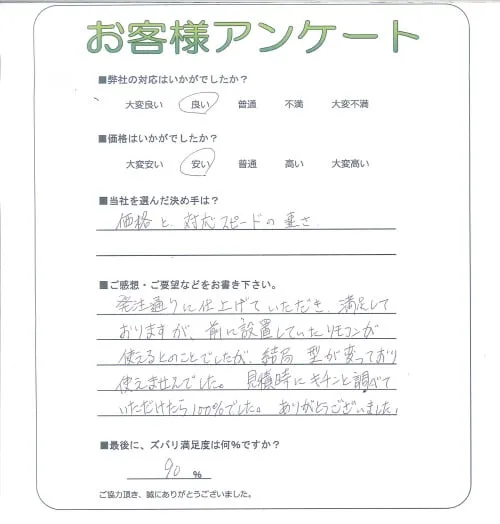 お客様アンケート
■弊社の対応はいかがでしたか？
大変良い 良い 普通 不満 大変不満
■価格はいかがでしたか？
大変安い 安い 普通 高い 大変高い
■当社を選んだ決め手は？
価格と、対応スピードの重さ、
■ご感想・ご要望などをお書き下さい。
発注通りに仕上げていただき、満足して
おりますが、前に設置していたリモコンが
使えるとのことでしたが、結局 型が変っており
使えませんでした。 見積時にキチンと調べて
いただけたら100%でした。 ありがとうございました。
■最後に、ズバリ満足度は何%ですか？
90 %
ご協力頂き、誠にありがとうございました。